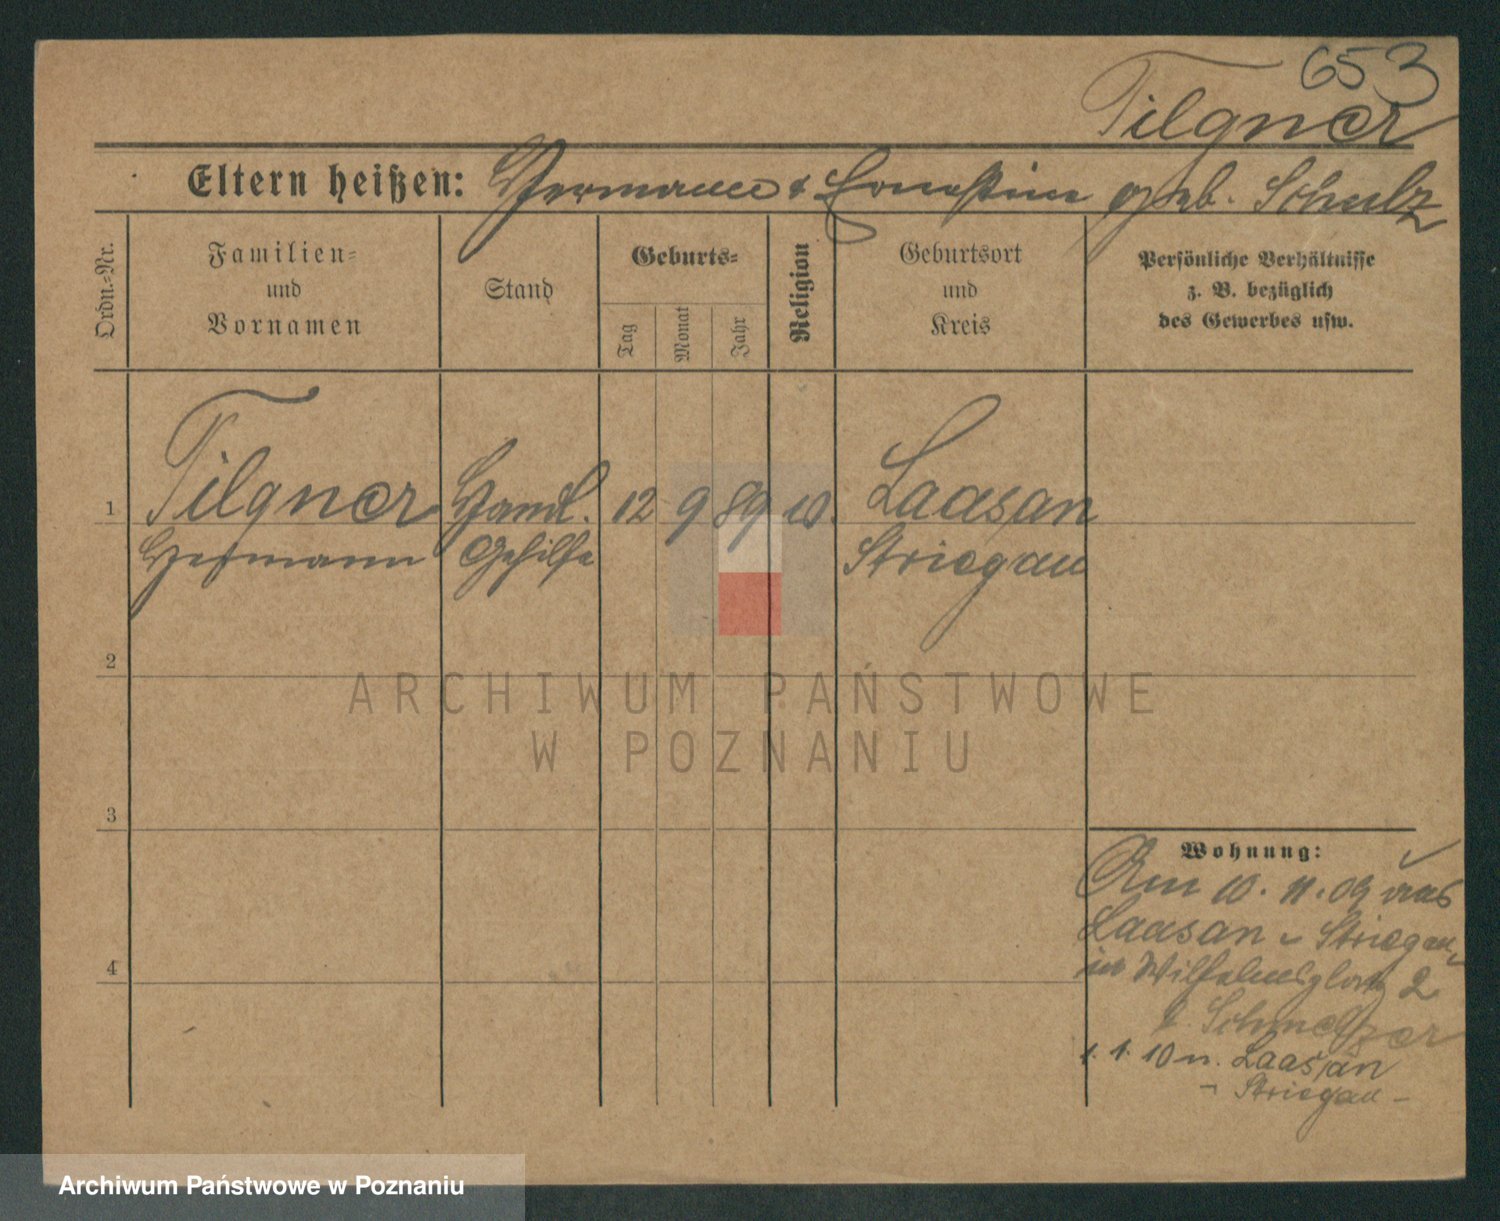 653
Tilgner
Eltern heißen: Hermann & Ernestine geb. Schulz
Ordn.-Nr.
Familien-
und
Vornamen
Stand
Geburts-
Tag
Monat
Jahr
Religion
Geburtsort
und
Kreis
Persönliche Verhältnisse
z. B. bezüglich
des Gewerbes usw.
1 Tilgner Handl. 12 9 89 Laasan
Hermann Gehilfe Striegau
2
3
4
Wohnung:
Am 10. 11. 09 aus
Laasan - Striegau
in Wilhelmsplatz 2
b. Schmelzer
1. 1. 10 n. Laasan
- Striegau -
ARCHIWUM PAŃSTWOWE
W POZNANIU
Archiwum Państwowe w Poznaniu